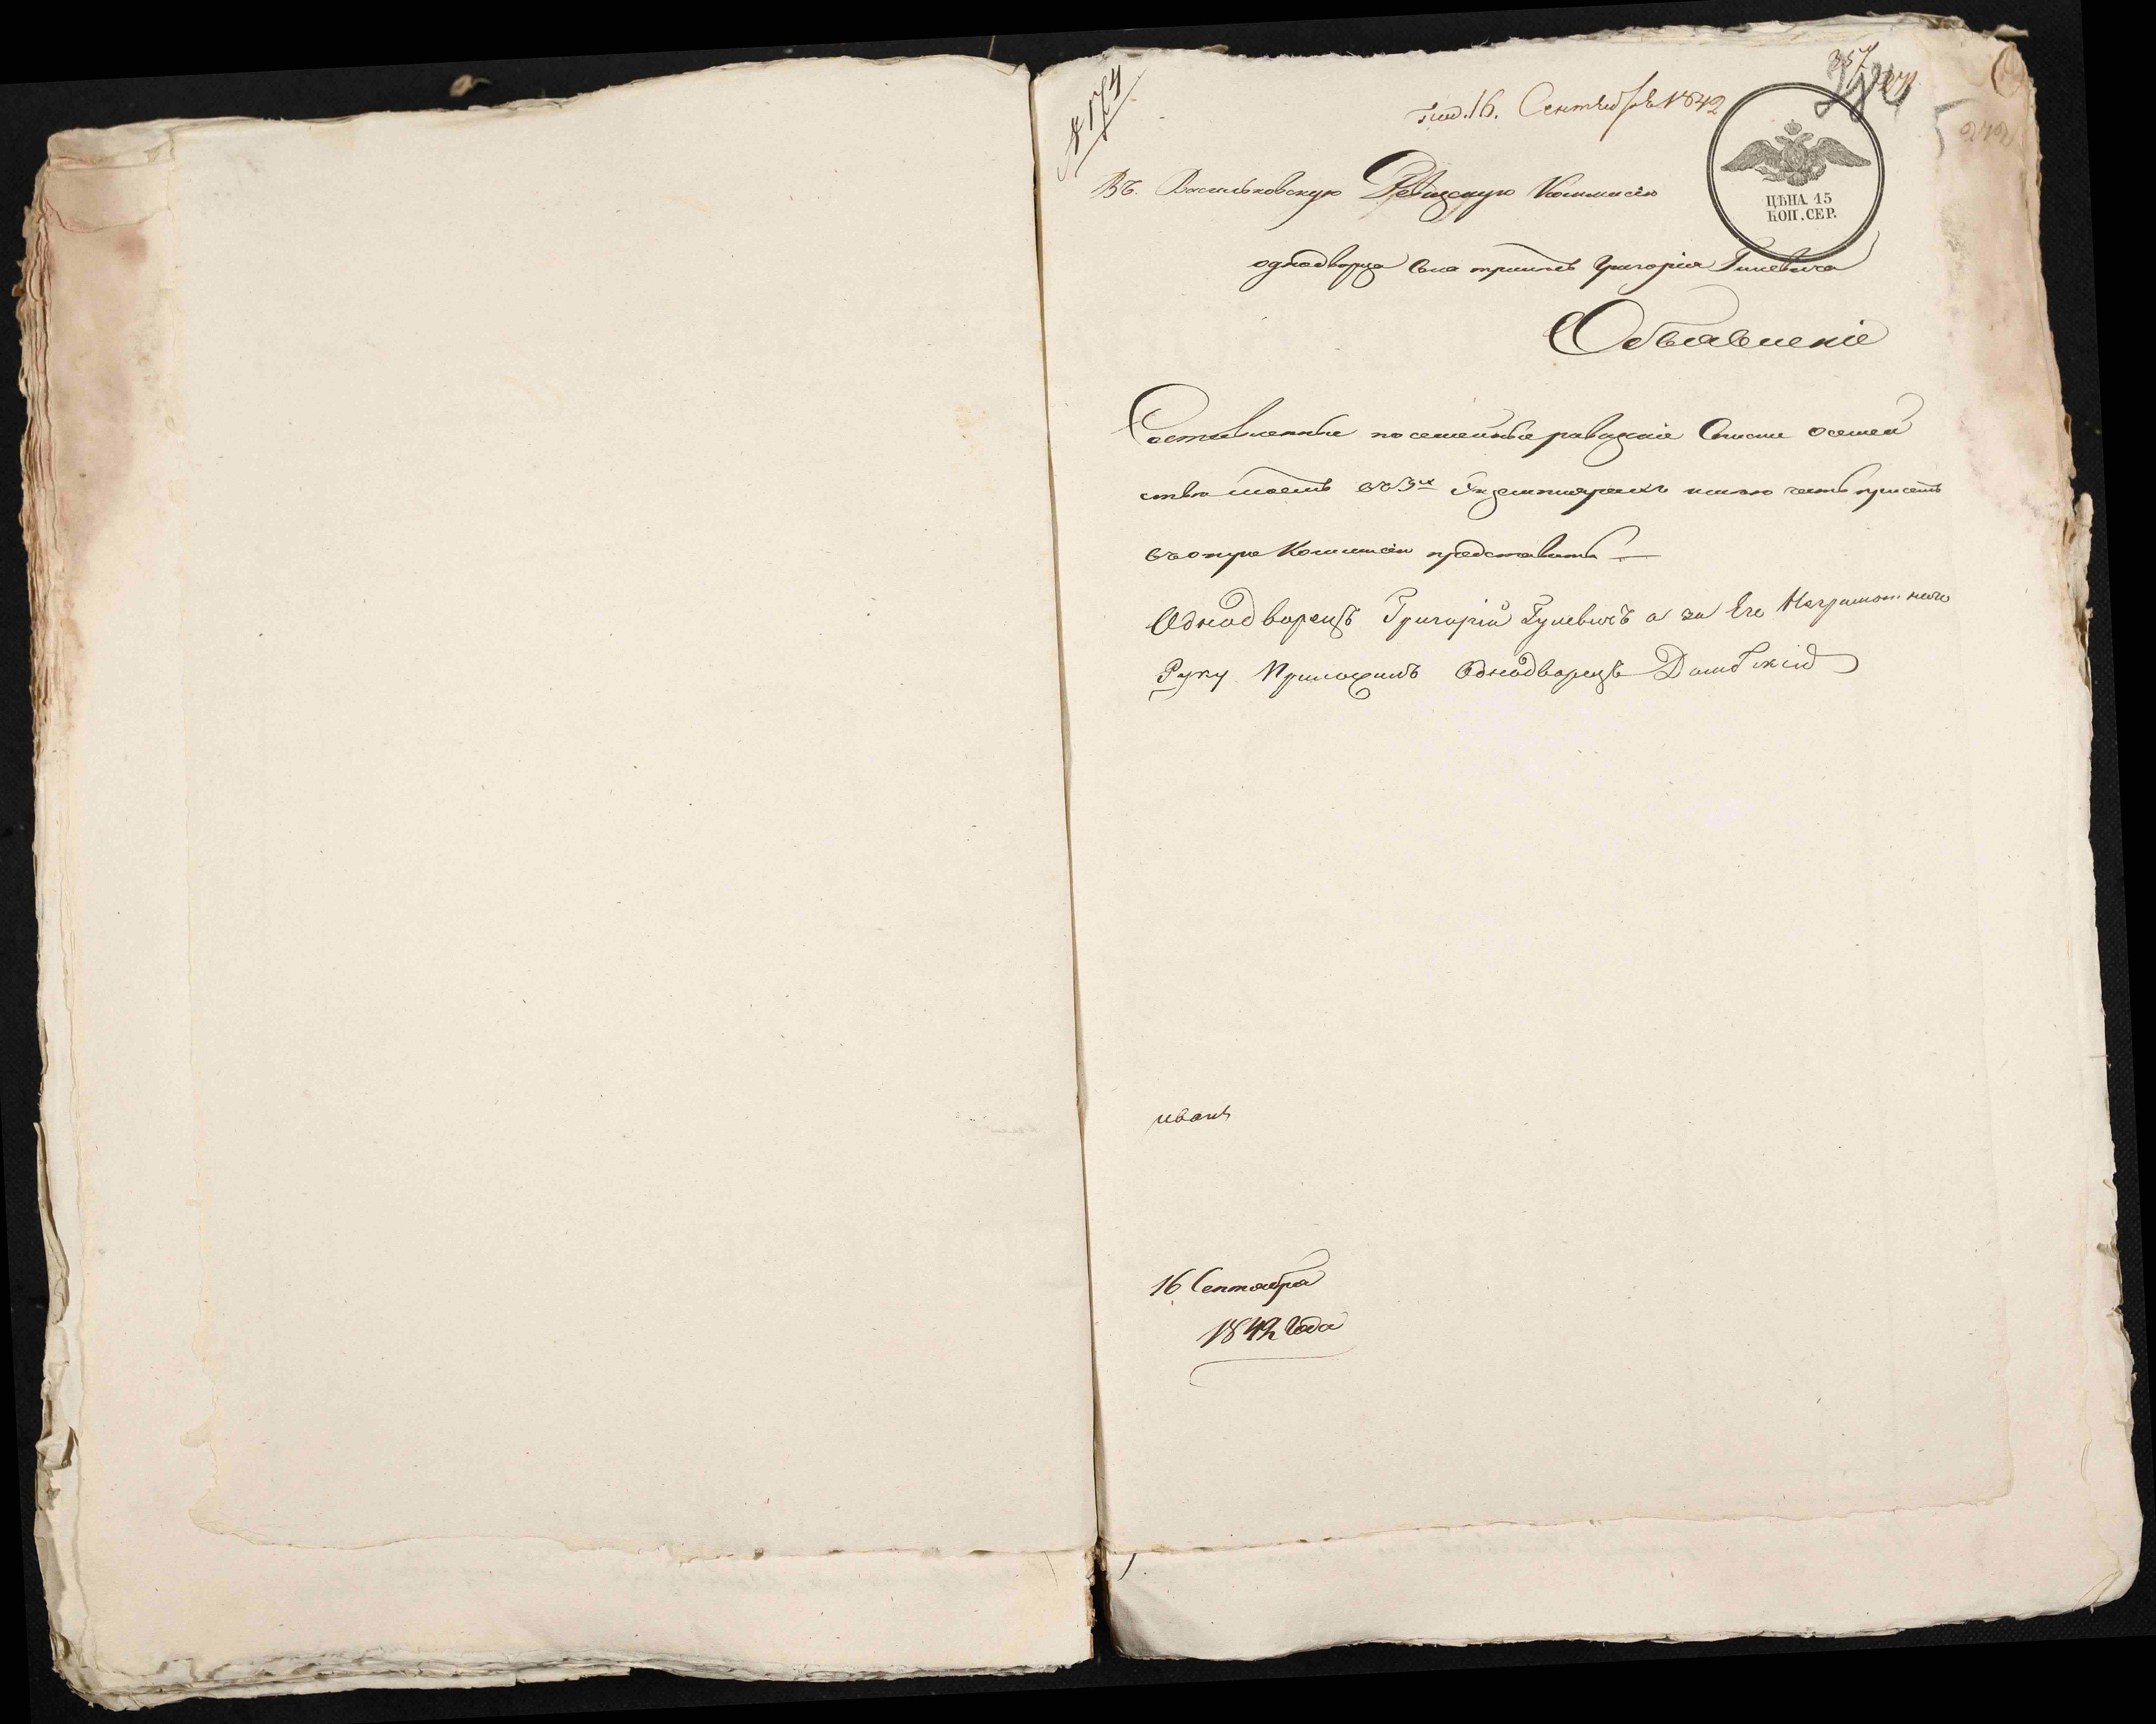 № 174
357
271
272
Под. 16. Сентября 1842
ЦѢНА 15
КОП. СЕР.
Въ Васильковскую Ревизскую Коммисію
однодворца Григорія Гулевича
Объявленіе
Составленные посемейные ревизкіе Списки о семей
ствѣ моемъ въ 3х Екземплярахъ имѣю честь при семъ
въ оную Коммисію представить
Однодворецъ Григорій Гулевичъ а за Его Неграмотнаго
Руку Приложилъ Однодворецъ Домбскій
иванъ
16 Сентября
1842 Года